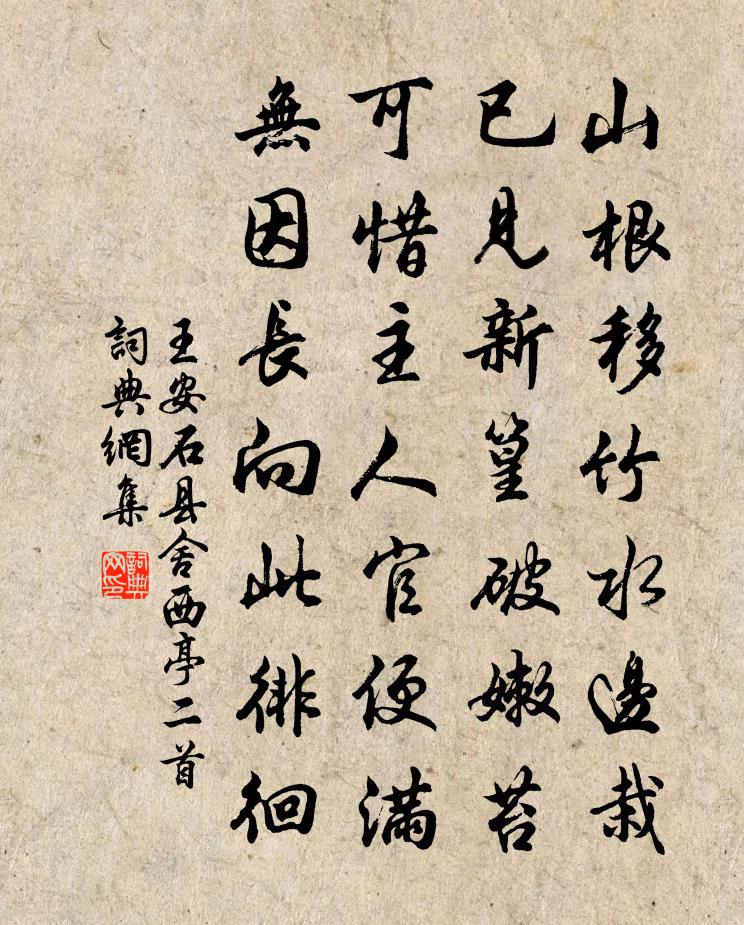 山根移竹水邊栽
已見新篁破嫩苔
可惜主人官便滿
無因長向此徘徊
王安石县舍西亭二首
詞典網集
詞典网印